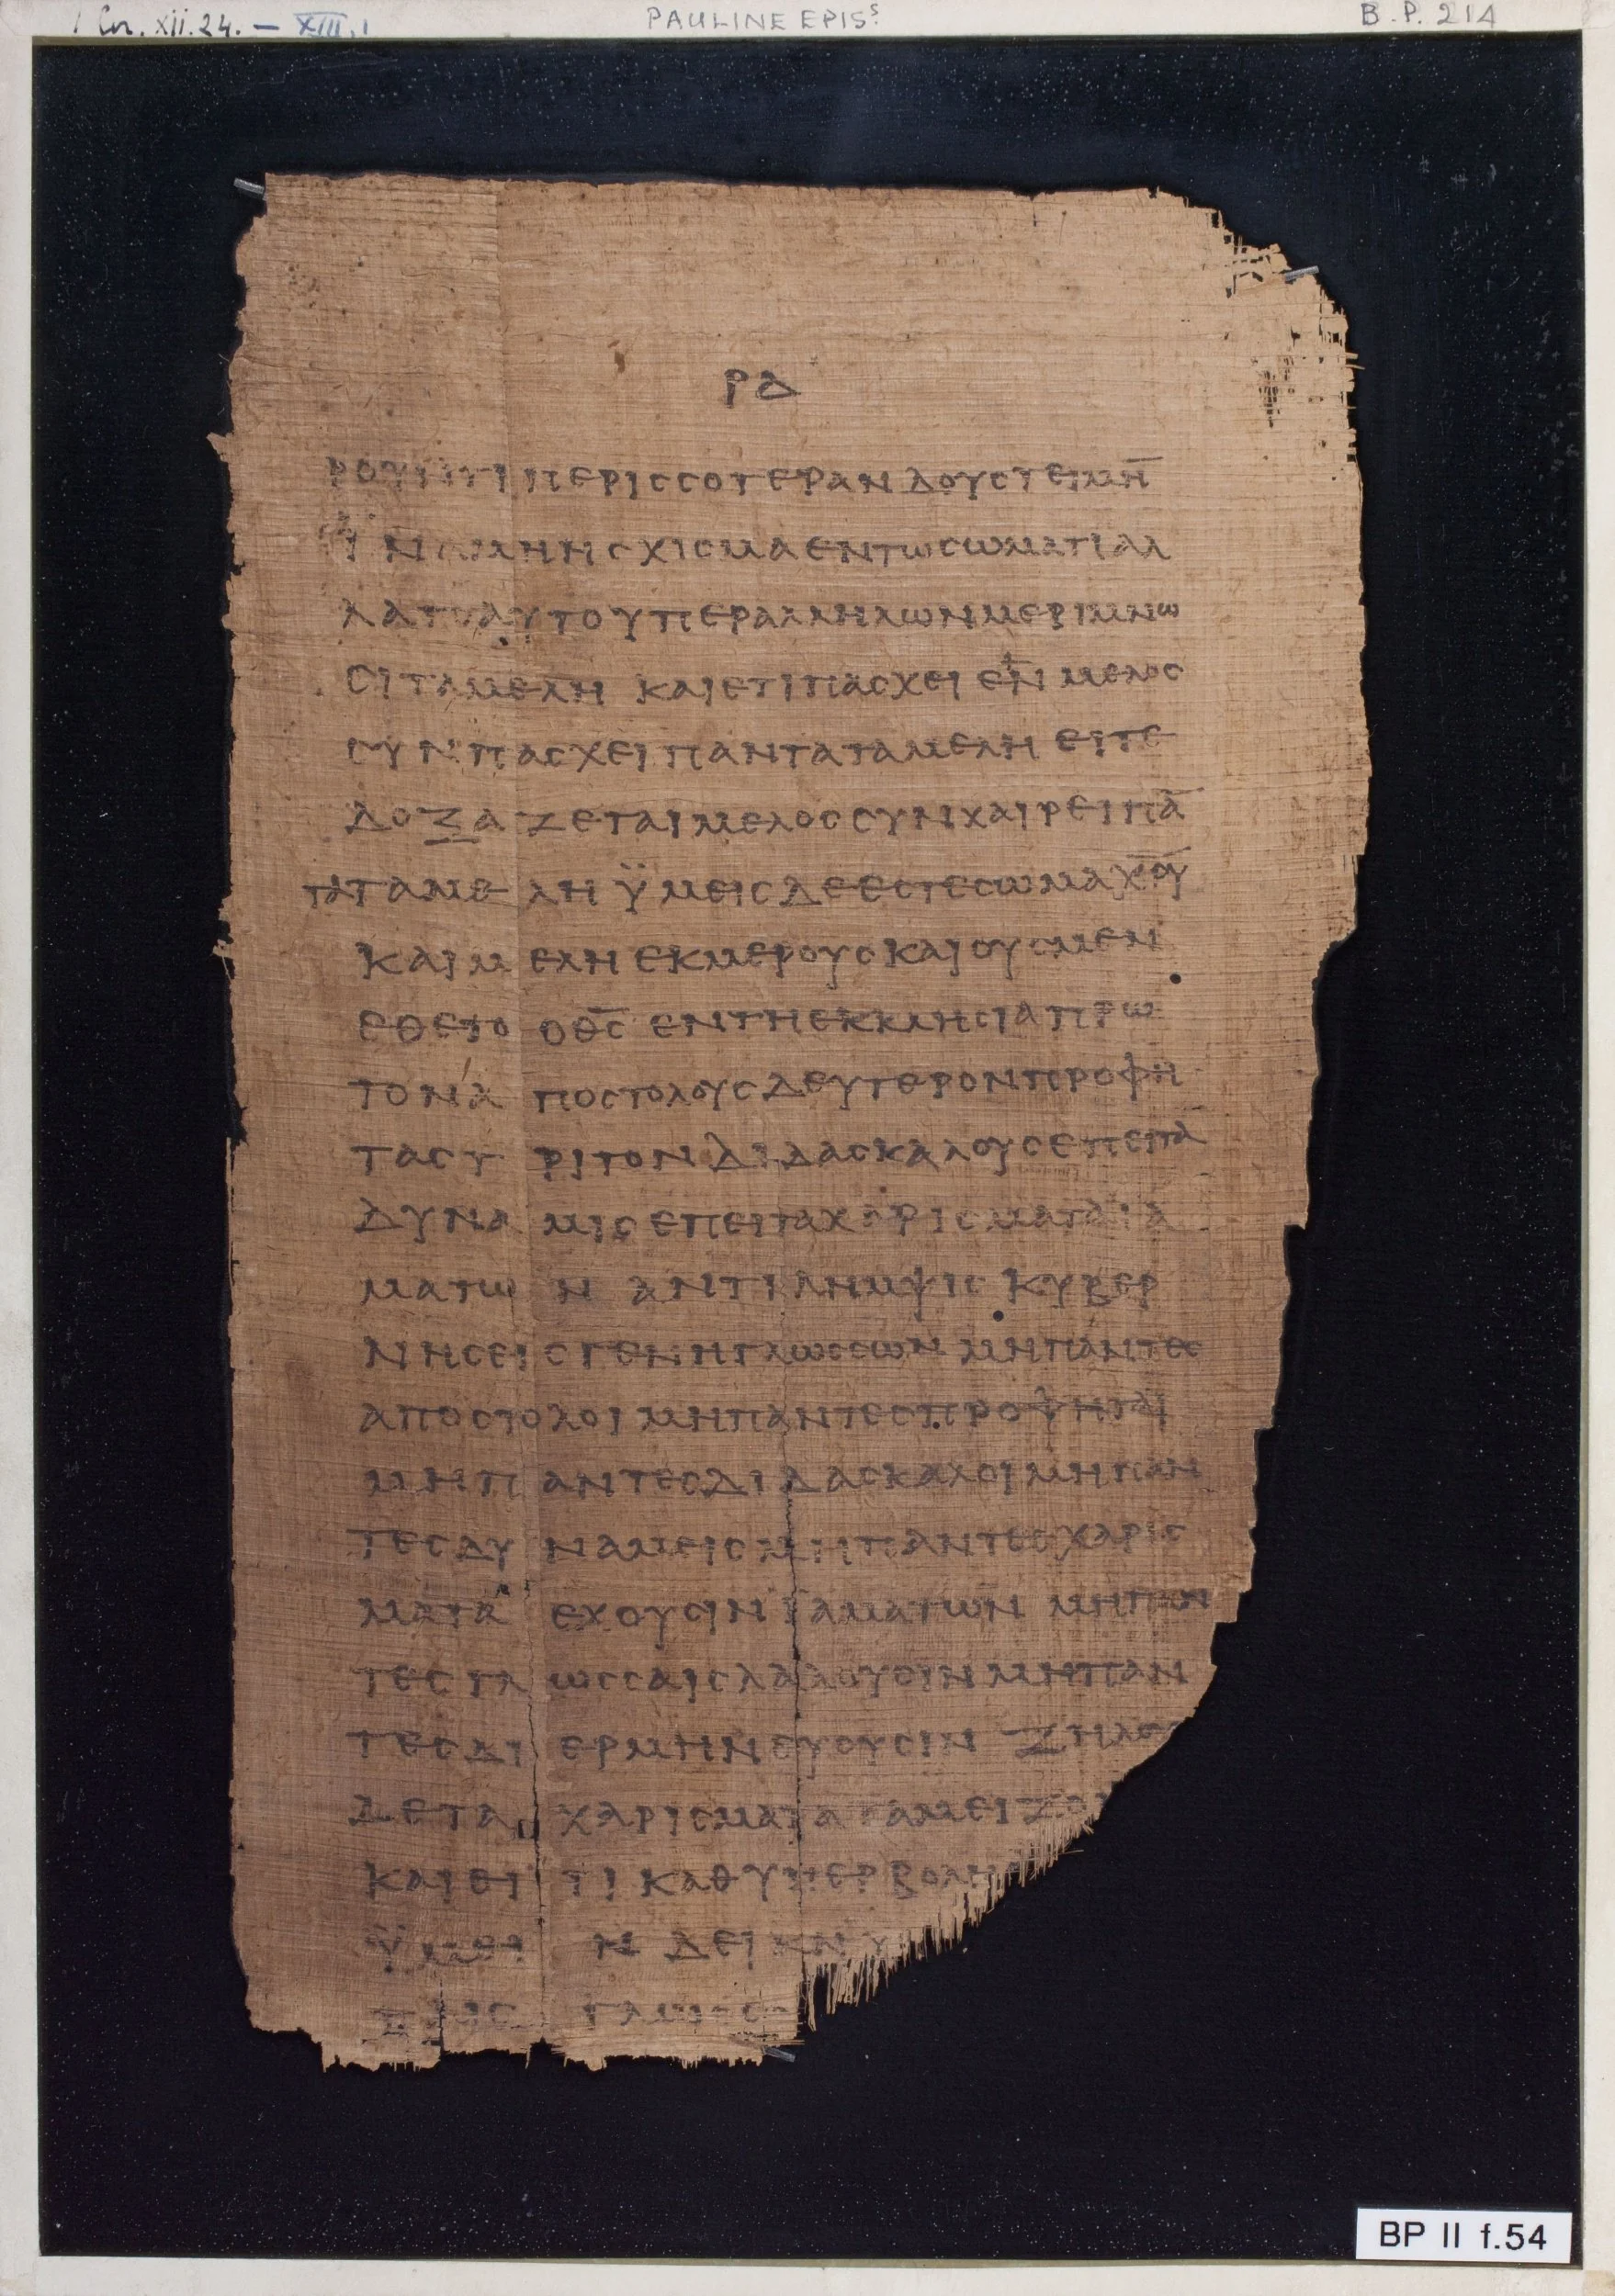 1 Cor. xii. 24. — XIII, 1 PAULINE EPISˢ. B. P. 214
ΡΔ
ΠΕΡΙϹϹΟΤΕΡΑΝ ΔΟΥϹ ΤΕΙΜΗ̄
ΜΗ Η ϹΧΙϹΜΑ ΕΝ ΤΩ ϹΩΜΑΤΙ ΑΛ
ΛΑ ΑΥΤΟ ΥΠΕΡ ΑΛΛΗΛΩΝ ΜΕΡΙΜΝΩ
ϹΙ ΤΑ ΜΕΛΗ ΚΑΙ ΕΤΙ ΠΑϹΧΕΙ ΕΝ ΜΕΛΟϹ
ϹΥΝΠΑϹΧΕΙ ΠΑΝΤΑ ΤΑ ΜΕΛΗ ΕΙΤΕ
ΔΟΞΑΖΕΤΑΙ ΜΕΛΟϹ ϹΥΝΧΑΙΡΕΙ ΠᾹ
ΤΑ ΤΑ ΜΕΛΗ ΫΜΕΙϹ ΔΕ ΕϹΤΕ ϹΩΜΑ Χ̅Ο̅Υ̅
ΚΑΙ ΜΕΛΗ ΕΚ ΜΕΡΟΥϹ ΚΑΙ ΟΥϹ ΜΕΝ
ΕΘΕΤΟ Ο Θ̅Ϲ̅ ΕΝ ΤΗ ΕΚΚΛΗϹΙΑ ΠΡΩ
ΤΟΝ ΑΠΟϹΤΟΛΟΥϹ ΔΕΥΤΕΡΟΝ ΠΡΟΦΗ
ΤΑϹ ΤΡΙΤΟΝ ΔΙΔΑϹΚΑΛΟΥϹ ΕΠΕΙΤΑ
ΔΥΝΑΜΙϹ ΕΠΕΙΤΑ ΧΑΡΙϹΜΑΤΑ ΙΑ
ΜΑΤΩΝ ΑΝΤΙΛΗΜΨΙϹ ΚΥΒΕΡ
ΝΗϹΕΙϹ ΓΕΝΗ ΓΛΩϹϹΩΝ ΜΗ ΠΑΝΤΕϹ
ΑΠΟϹΤΟΛΟΙ ΜΗ ΠΑΝΤΕϹ ΠΡΟΦΗΤΑΙ
ΜΗ ΠΑΝΤΕϹ ΔΙΔΑϹΚΑΛΟΙ ΜΗ ΠΑΝ
ΤΕϹ ΔΥΝΑΜΕΙϹ ΜΗ ΠΑΝΤΕϹ ΧΑΡΙϹ
ΜΑΤΑ ΕΧΟΥϹΙΝ ΙΑΜΑΤΩΝ ΜΗ ΠΑΝ
ΤΕϹ ΓΛΩϹϹΑΙϹ ΛΑΛΟΥϹΙΝ ΜΗ ΠΑΝ
ΤΕϹ ΔΙΕΡΜΗΝΕΥΟΥϹΙΝ ΖΗΛΟ
ΔΕ ΤΑ ΧΑΡΙϹΜΑΤΑ ΤΑ ΜΕΙΖΟ
ΚΑΙ ΕΙ ΤΙ ΚΑΘ ΥΠΕΡΒΟΛΗ
ΔΕΙΚΝΥ
BP II f.54